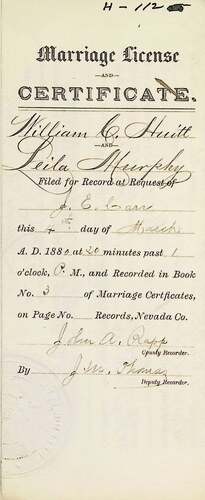 H-112
Marriage License
—AND—
CERTIFICATE.
William C. Huitt
—AND—
Leila Murphy
Filed for Record at Request of
J. E. Carr
this 4th day of March
A. D. 1880 at 20 minutes past 1
o'clock, P. M., and Recorded in Book
No. 3 of Marriage Certficates,
on Page No. Records, Nevada Co.
John A. Rapp
County Recorder.
By J. M. Thomas
Deputy Recorder.